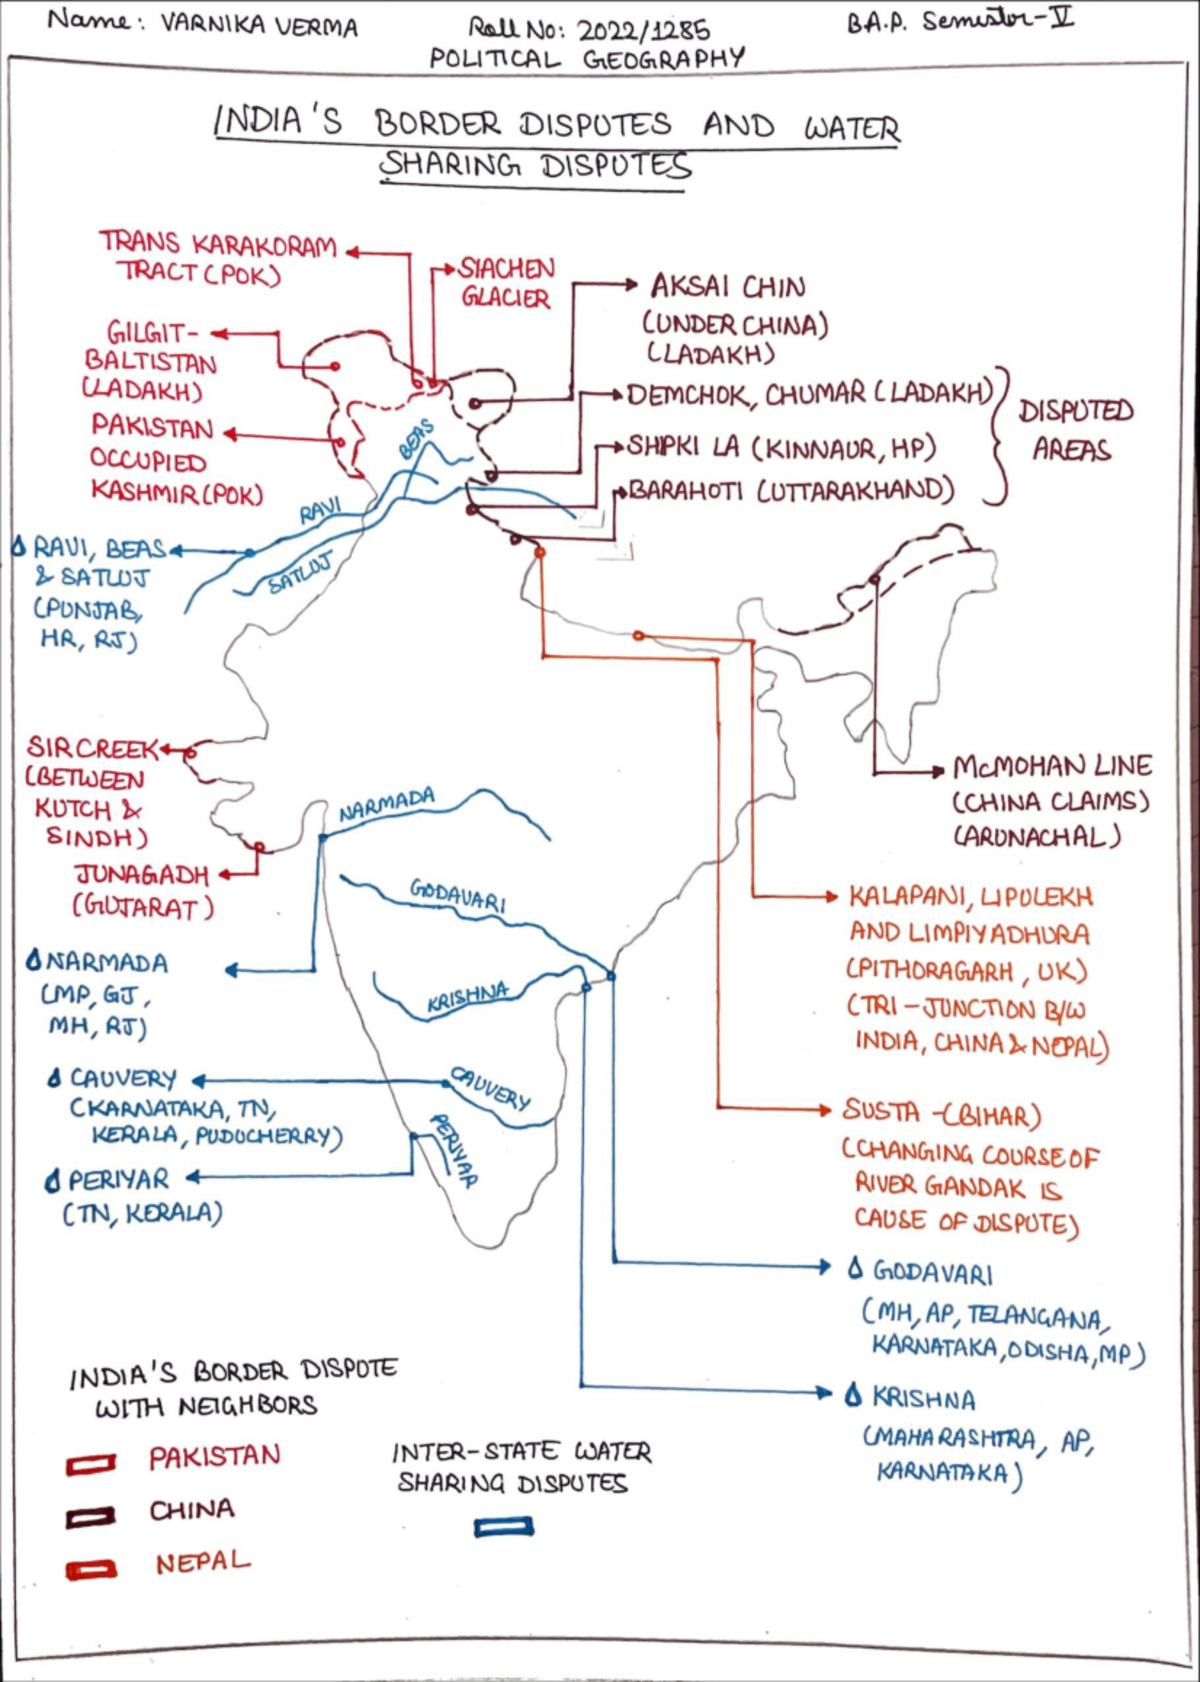 Name: VARNIKA VERMA
Roll No: 2022/1285
B.A.P. Semester-V
POLITICAL GEOGRAPHY
INDIA'S BORDER DISPUTES AND WATER
SHARING DISPUTES
TRANS KARAKORAM
TRACT (POK)
SIACHEN
GLACIER
AKSAI CHIN
(UNDER CHINA)
(LADAKH)
GILGIT-
BALTISTAN
(LADAKH)
DEMCHOK, CHUMAR (LADAKH)
SHIPKI LA (KINNAUR, HP)
BARAHOTI (UTTARAKHAND)
DISPUTED
AREAS
PAKISTAN
OCCUPIED
KASHMIR (POK)
BEAS
RAVI
SATLUJ
RAVI, BEAS
& SATLUJ
(PUNJAB,
HR, RJ)
SIR CREEK
(BETWEEN
KUTCH &
SINDH)
JUNAGADH
(GUJARAT)
McMOHAN LINE
(CHINA CLAIMS)
(ARUNACHAL)
NARMADA
GODAVARI
KRISHNA
CAUVERY
PERIYAR
KALAPANI, LIPULEKH
AND LIMPIYADHURA
(PITHORAGARH, UK)
(TRI-JUNCTION B/W
INDIA, CHINA & NEPAL)
NARMADA
(MP, GJ,
MH, RJ)
CAUVERY
(KARNATAKA, TN,
KERALA, PUDUCHERRY)
PERIYAR
(TN, KERALA)
SUSTA -(BIHAR)
(CHANGING COURSE OF
RIVER GANDAK IS
CAUSE OF DISPUTE)
GODAVARI
(MH, AP, TELANGANA,
KARNATAKA, ODISHA, MP)
KRISHNA
(MAHARASHTRA, AP,
KARNATAKA)
INDIA'S BORDER DISPUTE
WITH NEIGHBORS
PAKISTAN
CHINA
NEPAL
INTER-STATE WATER
SHARING DISPUTES